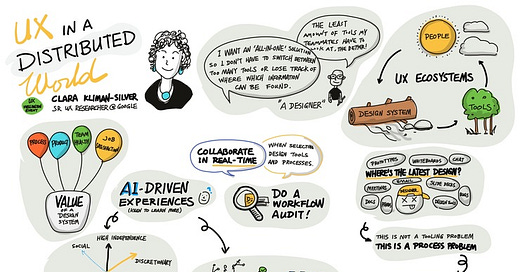 UX IN A
DISTRIBUTED
World
CLARA KLIMAN-SILVER
SR. UX RESEARCHER @ GOOGLE
I WANT AN 'ALL-IN-ONE' SOLUTION
SO I DON'T HAVE TO SWITCH BETWEEN
TOO MANY TOOLS OR LOSE TRACK OF
WHERE WHICH INFORMATION
CAN BE FOUND.
THE LEAST
AMOUNT OF TOOLS MY
TEAMMATES HAVE TO
LOOK AT, THE BETTER!
"A DESIGNER"
PEOPLE
UX ECOSYSTEMS
DESIGN SYSTEM
TOOLS
PROCESS
PRODUCT
TEAM
HEALTH
JOB
SATISFACTION
VALUE
OF A
DESIGN SYSTEM
COLLABORATE
IN REAL-TIME
WHEN SELECTING
DESIGN TOOLS
AND PROCESSES.
AI-DRIVEN
EXPERIENCES
DO A
WORKFLOW
AUDIT!
PROTOTYPES
WHITEBOARDS
CHAT
WHERE'S THE LATEST DESIGN?
MEETINGS
EMAIL
SLIDE DECKS
DESIGNER
DOCS
THIS IS NOT A TOOLING PROBLEM
THIS IS A PROCESS PROBLEM
HIGH INDEPENDENCE
SOCIAL
DISCRETIONARY